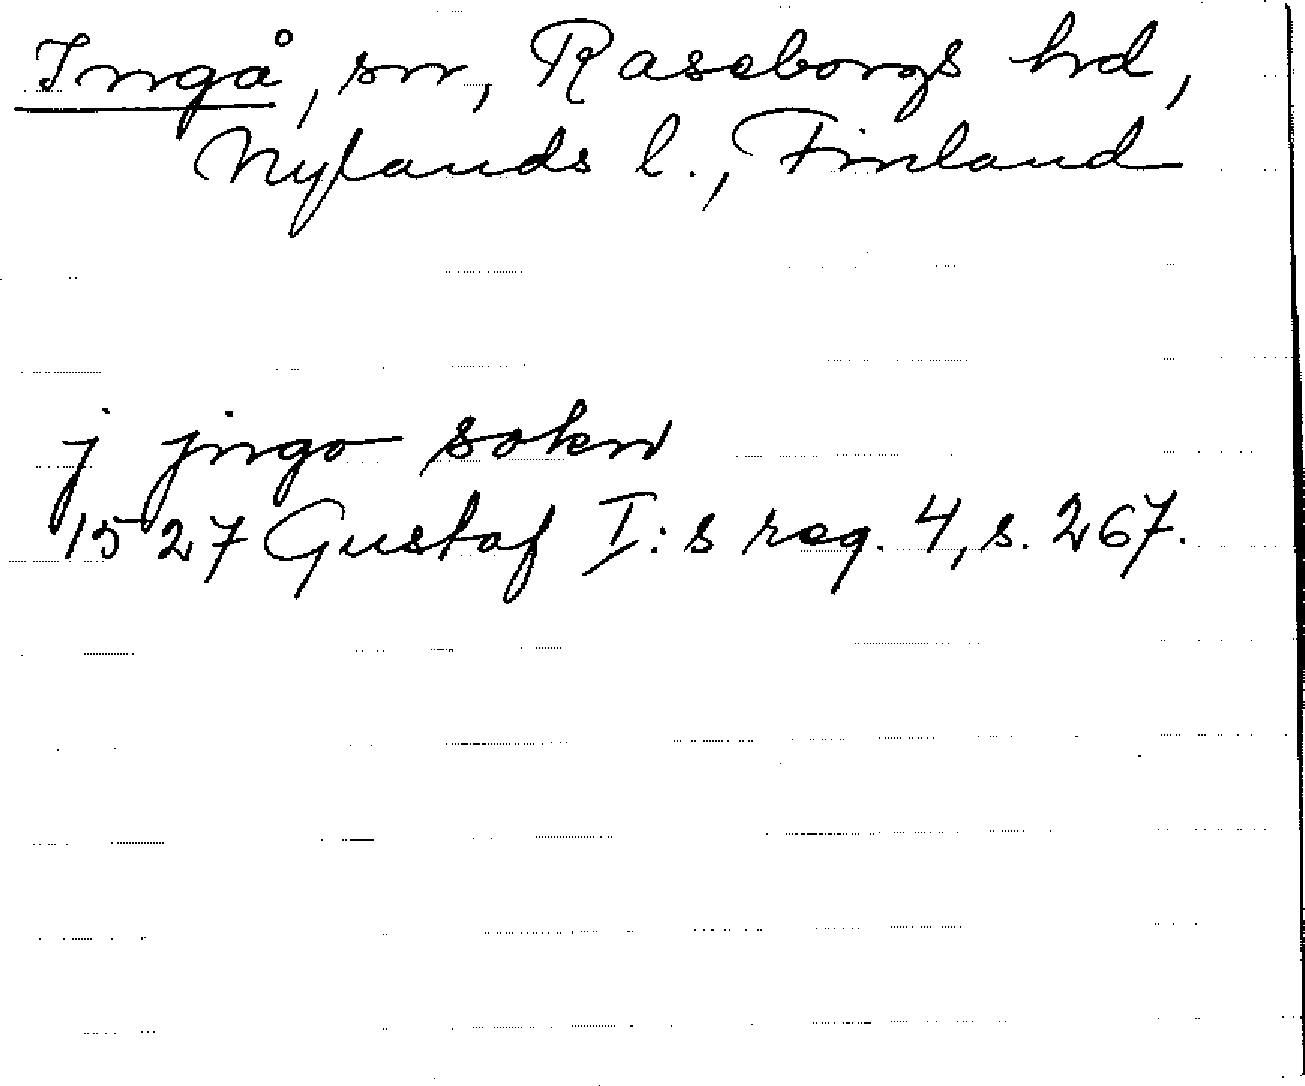 Ingå, sn, Raseborgs hd,
Nylands l., Finland
j jngo sokn
1527 Gustaf I:s reg. 4, s. 267.